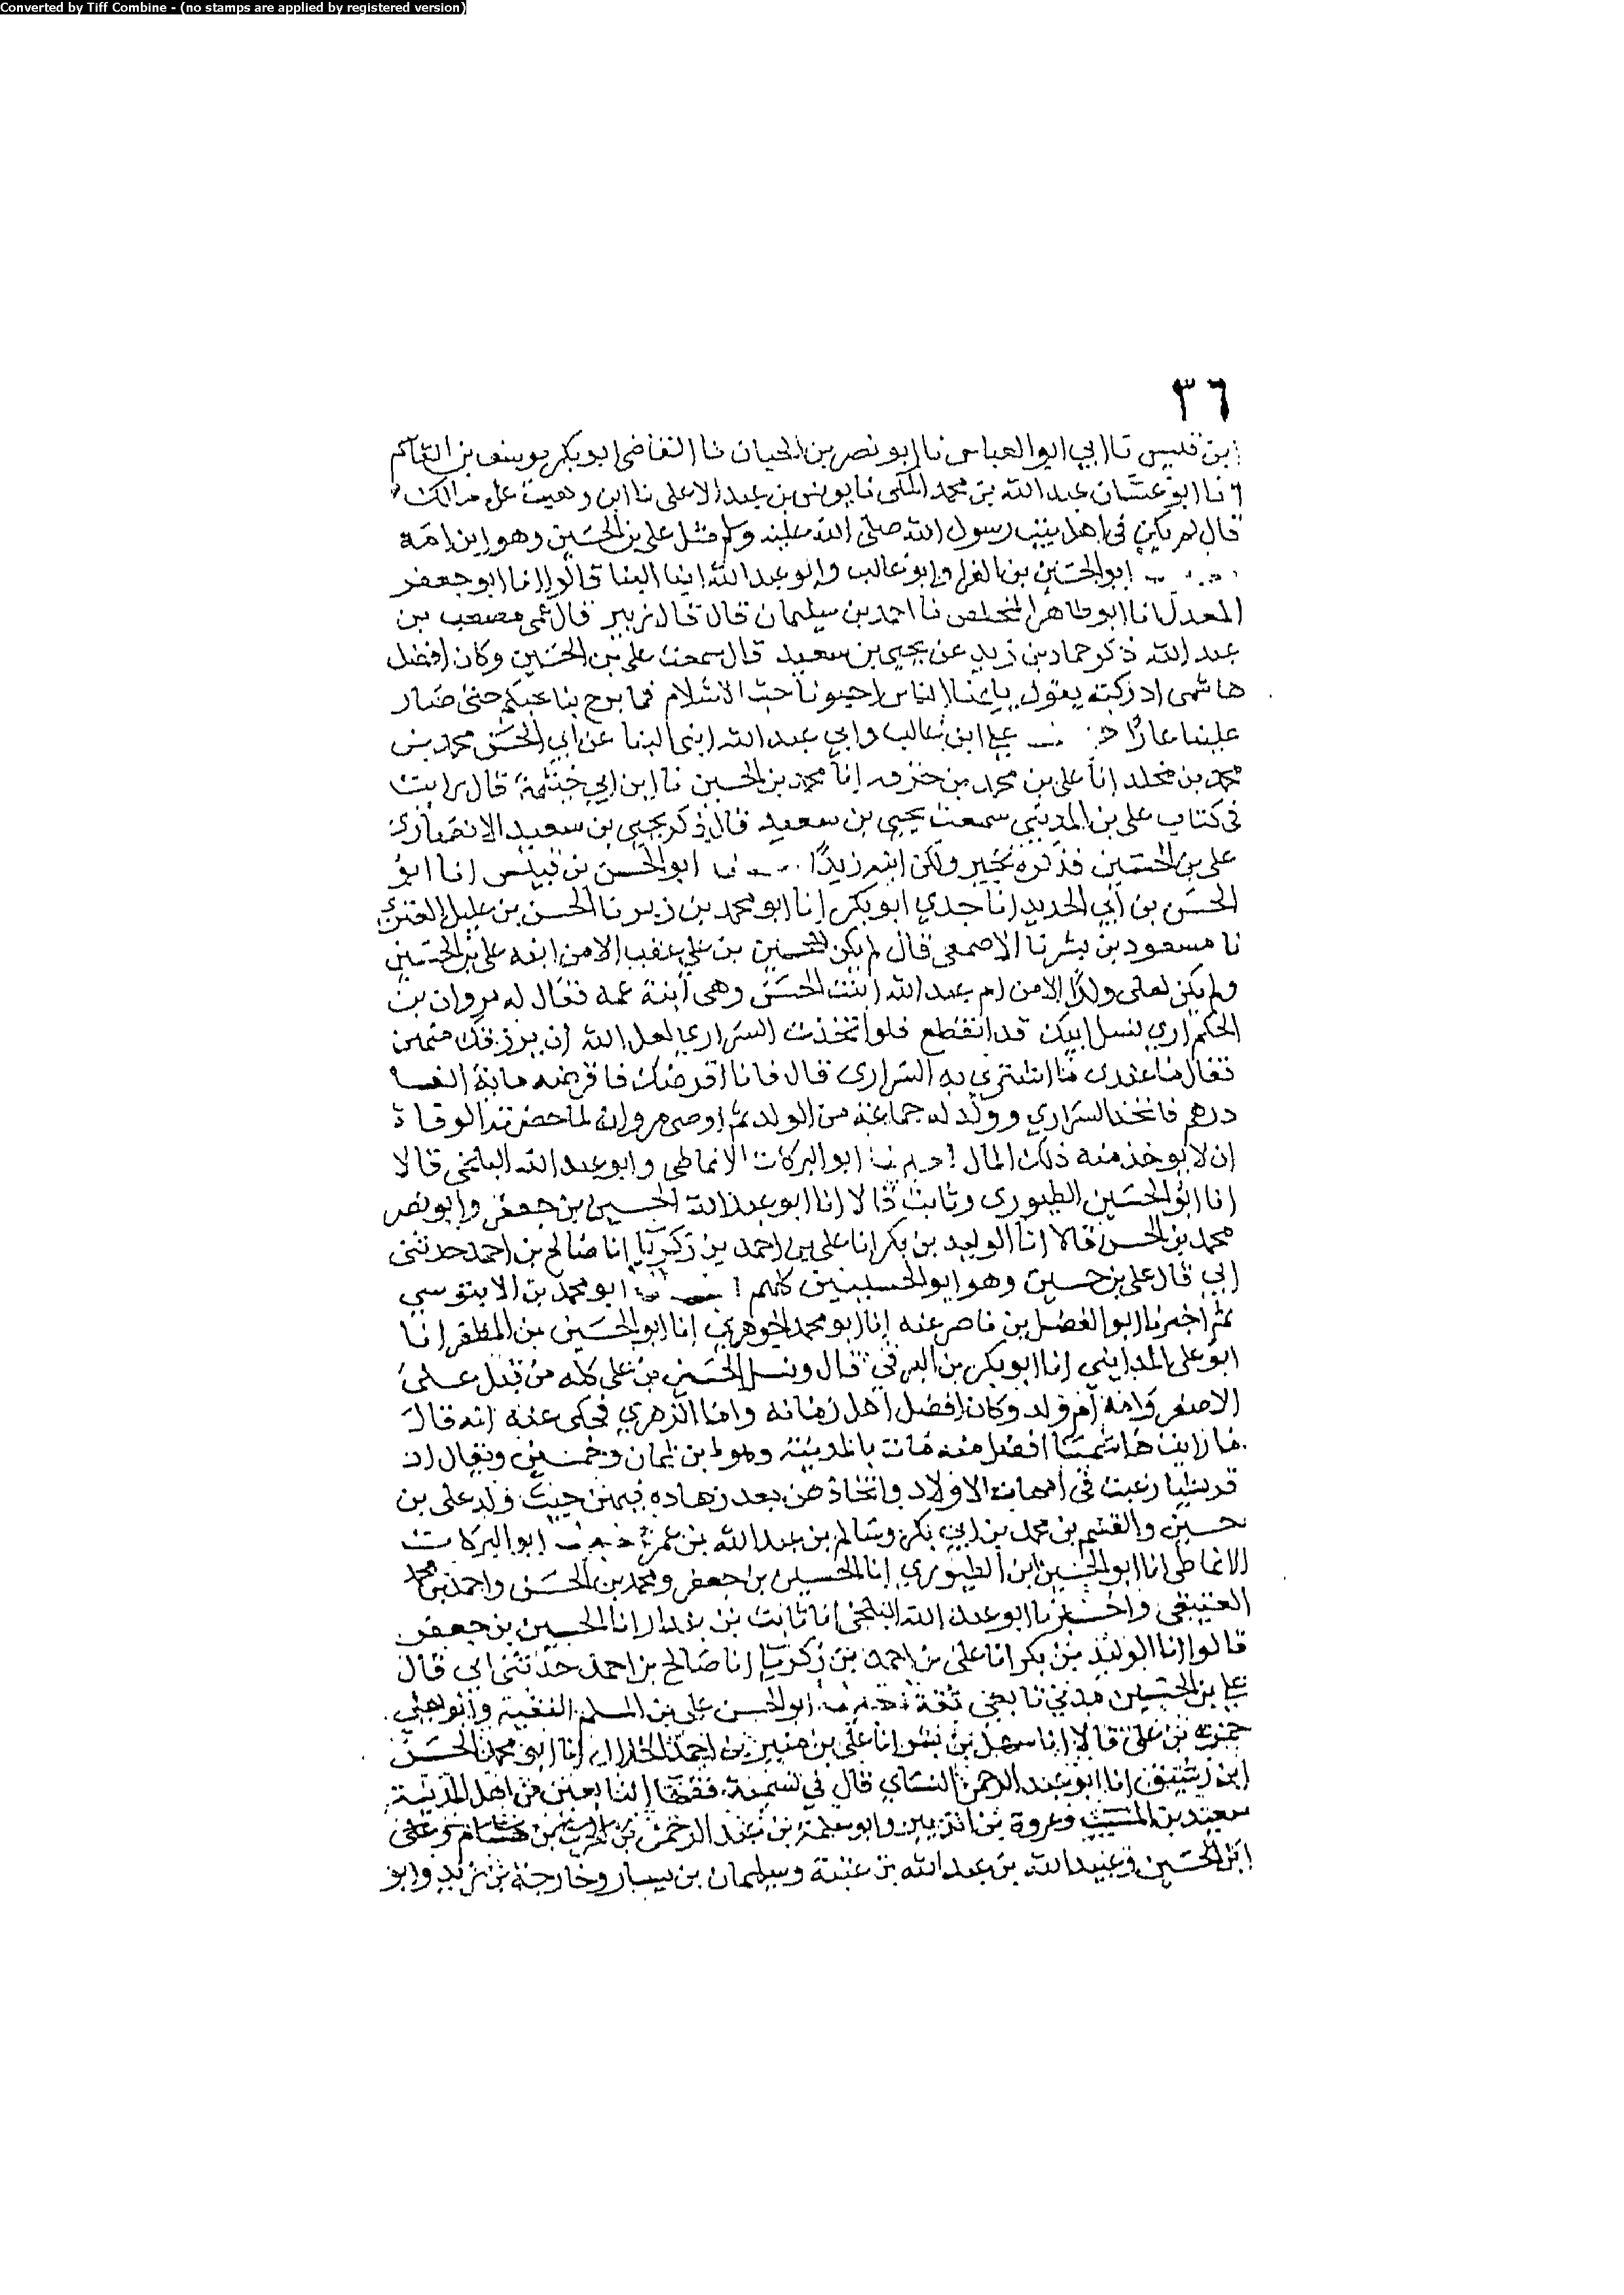 Converted by Tiff Combine - (no stamps are applied by registered version)
٣٦
بن قبيس نا ابي ابو العباس نا ابو نصر بن الجبان نا القاضي ابو بكر يوسف بن القاسم
نا ابو غسان عبد الله بن محمد المكي نا يونس بن عبد الاعلى نا ابن وهب عن مالك
قال لم يكن في اهل بيت رسول الله صلى الله عليه وسلم مثل علي بن الحسين وهو ابن امة
ابو الحسين بن الفرا وابو غالب وابو عبد الله ابنا البنا قالوا انا ابو جعفر
المعدل انا ابو طاهر المخلص نا احمد بن سليمان قال قال زبير قال عمي مصعب بن
عبد الله ذكر حماد بن زيد عن يحيى بن سعيد قال سمعت علي بن الحسين وكان افضل
هاشمي ادركته يقول يا ايها الناس احبونا حب الاسلام فما برح بنا حبكم حتى صار
علينا عارا علي ابن غالب وابي عبد الله ابني البنا عن ابي الحسن محمد بن
محمد بن مخلد انا علي بن محمد بن خزفه انا محمد بن الحسين نا ابن ابي خيثمة قال رايت
في كتاب علي بن المديني سمعت يحيى بن سعيد قال ذكر يحيى بن سعيد الانصاري
علي بن الحسين فذكره بخير ولكن ابنه زيدا ابو الحسن بن قبيس انا ابو
الحسن بن ابي الحديد انا جدي ابو بكر انا ابو محمد بن زبر نا الحسن بن عليل العنزي
نا مسعود بن بشر نا الاصمعي قال لم يكن للحسين بن علي عقب الا من ابنه علي بن الحسين
ولم يكن لعلي ولد الا من ام عبد الله ابنت الحسن وهي ابنة عمه فقال له مروان بن
الحكم ارى نسل ابيك قد انقطع فلو اتخذت السراري لعل الله ان يرزقك منهن
فقال ما عندي ما اشتري به السراري قال فانا اقرضك فاقرضه ماية الف
درهم فاتخذ السراري وولد له جماعة من الولد ثم اوصى مروان لما حضرته الوفاة
ان لا يوخذ منه ذلك المال ابو البركات الانماطي وابو عبد الله البلخي قالا
انا ابو الحسين الطيوري وثابت قالا انا ابو عبد الله الحسين بن جعفر وابو نصر
محمد بن الحسن قالا انا الوليد بن بكر انا علي بن احمد بن زكريا انا صالح بن احمد حدثني
ابي قال علي بن حسين وهو ابو الحسينيين كلهم ابو محمد بن الابنوسي
ثم اخبرنا ابو الفضل بن ناصر عنه انا ابو محمد الجوهري انا ابو الحسين بن المظفر انا
ابو علي المدايني انا ابو بكر بن البرقي قال ونسل الحسين بن علي كله من قبل علي
الاصغر وامه ام ولد وكان افضل اهل زمانه واما الزهري فحكى عنه انه قال
ما رايت هاشميا افضل منه مات بالمدينة وهو ابن ثمان وخمسين ويقال ان
قريشا رغبت في امهات الاولاد واتخاذهن بعد زهاده فيهن حيث ولد علي بن
حسين والقسم بن محمد بن ابي بكر وسالم بن عبد الله بن عمر ابو البركات
الانماطي انا ابو الحسين ابن الطيوري انا الحسين بن جعفر ومحمد بن الحسن واحمد بن محمد
العتيقي واخبرنا ابو عبد الله البلخي انا ثابت بن بندار انا الحسين بن جعفر
قالوا انا الوليد بن بكر انا علي بن احمد بن زكريا انا صالح بن احمد حدثني ابي قال
علي بن الحسين مدني تابعي ثقة ابو الحسن علي بن المسلم الفقيه وابو يعلى
حمزة بن علي قالا انا سهل بن بشر انا علي بن منير بن احمد الخلال انا ابو محمد الحسن
ابن رشيق انا ابو عبد الرحمن النساي قال في تسمية فقها التابعين من اهل المدينة
سعيد بن المسيب وعروة بن الزبير وابو سلمة بن عبد الرحمن بن الحرث بن هشام وعلي
ابن الحسين وعبيد الله بن عبد الله بن عتبة وسليمان بن يسار وخارجة بن زيد وابو